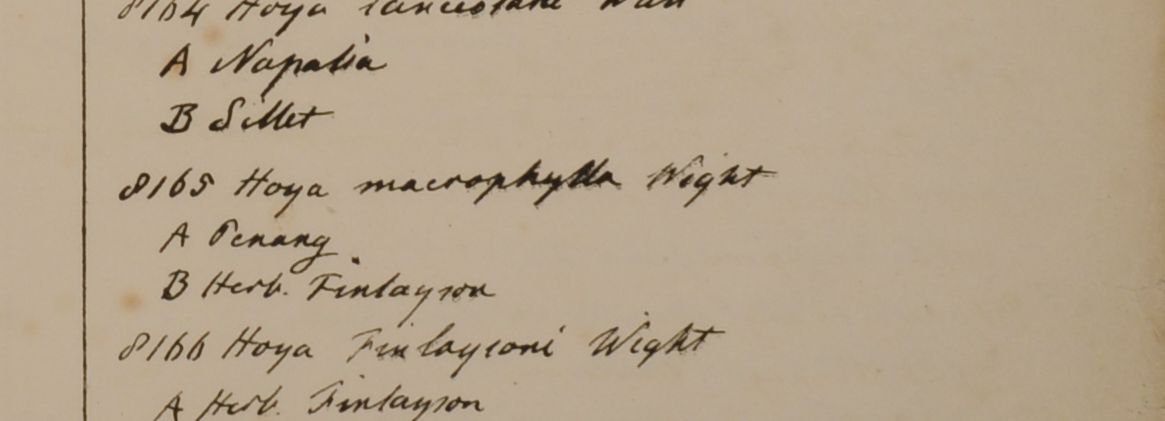 8164 Hoya lanceolata Wall
A Napalia
B Sillet
8165 Hoya macrophylla Wight
A Penang
B Herb. Finlayson
8166 Hoya Finlaysoni Wight
A Herb. Finlayson